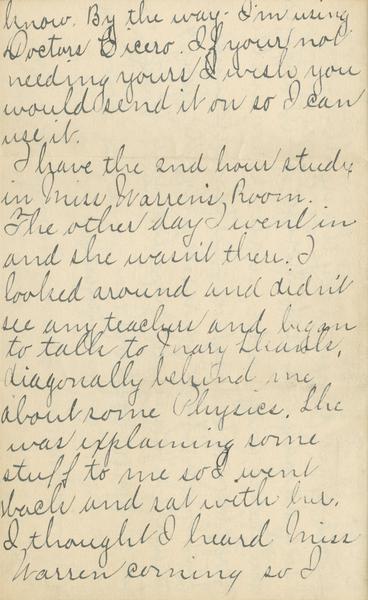 know. By the way - I'm using
Doctors Cicero. If your not
needing yours I wish you
would send it on so I can
use it.
I have the 2nd hour study
in Miss Warren's Room.
The other day I went in
and she wasn't there. I
looked around and didn't
see any teachers and began
to talk to Mary
diagonally behind me
about some Physics. She
was explaining some
stuff to me so I went
back and sat with her.
I thought I heard Miss
Warren coming so I